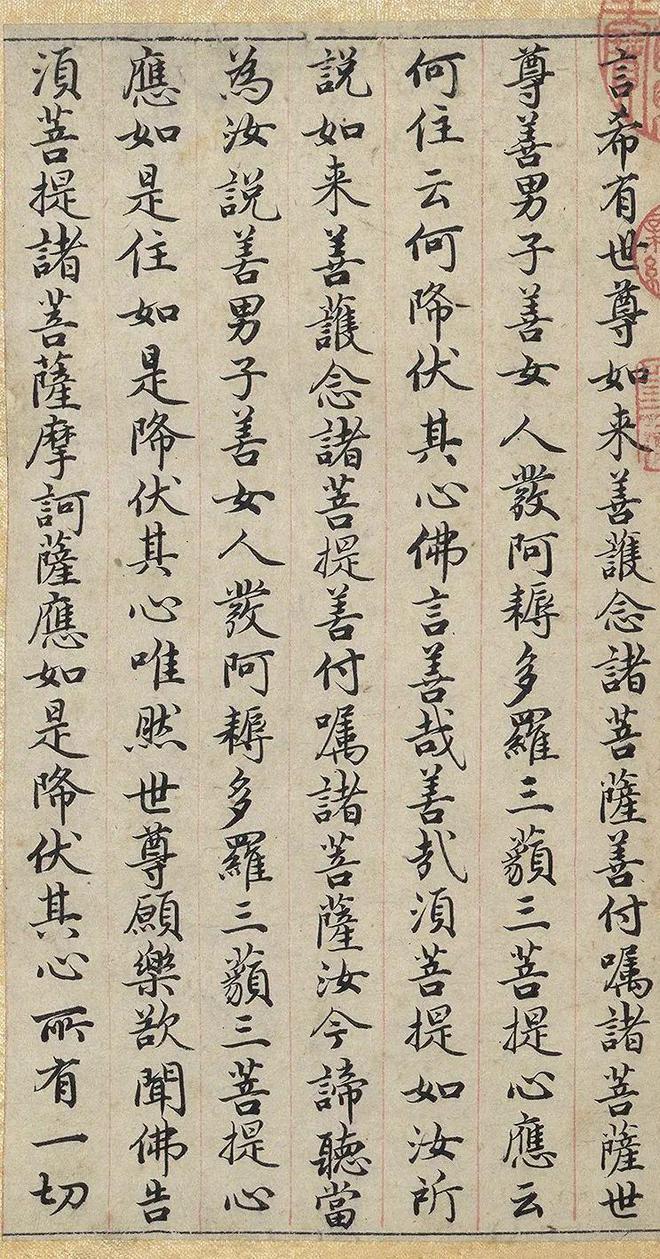 言希有世尊如来善護念諸菩薩善付嘱諸菩薩世
尊善男子善女人發阿耨多羅三藐三菩提心應云
何住云何降伏其心佛言善哉善哉須菩提如汝所
説如来善護念諸菩提善付嘱諸菩薩汝今諦聽當
為汝説善男子善女人發阿耨多羅三藐三菩提心
應如是住如是降伏其心唯然世尊願樂欲聞佛告
須菩提諸菩薩摩訶薩應如是降伏其心所有一切